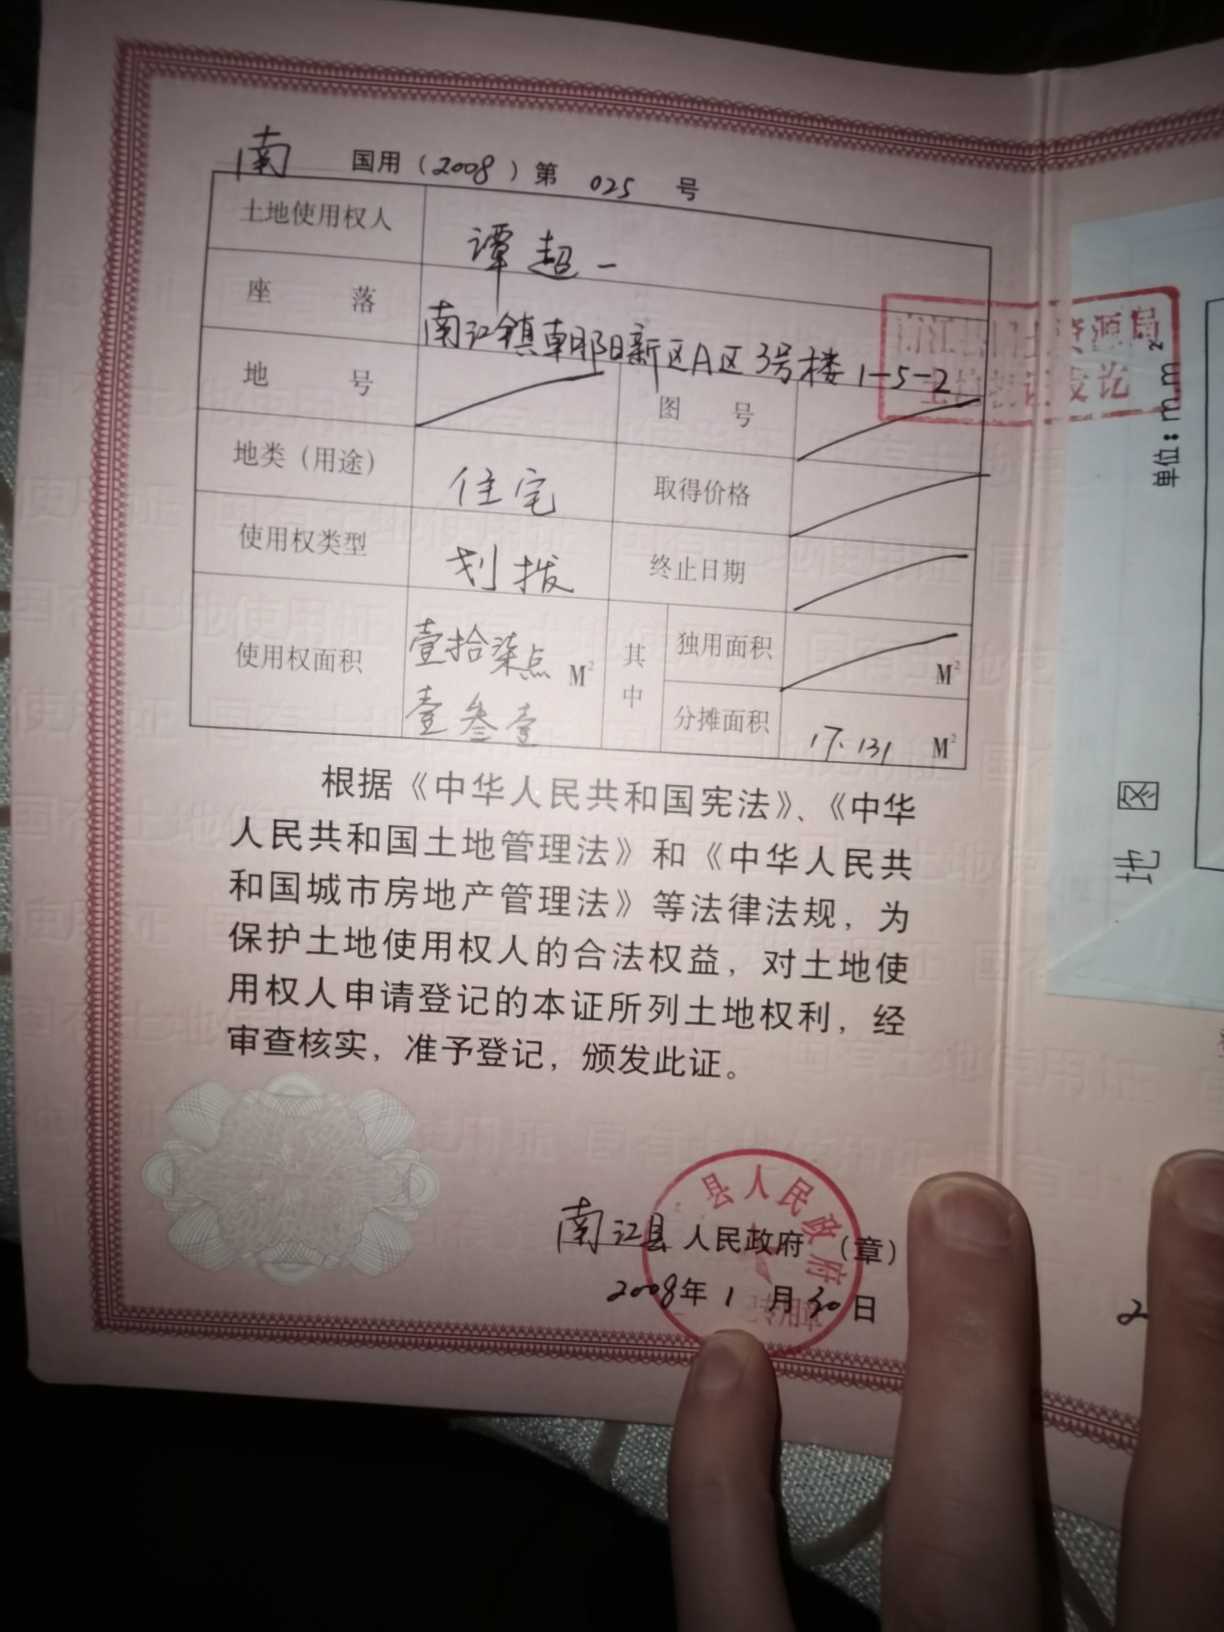 南 国用（2008）第 025 号
土地使用权人 谭超一
座 落 南江镇朝阳新区A区3号楼1-5-2
地 号 图 号
地类（用途） 住宅 取得价格
使用权类型 划拨 终止日期
使用权面积 壹拾柒点壹叁壹 M² 其中 独用面积 M²
分摊面积 17.131 M²
根据《中华人民共和国宪法》、《中华
人民共和国土地管理法》和《中华人民共
和国城市房地产管理法》等法律法规，为
保护土地使用权人的合法权益，对土地使
用权人申请登记的本证所列土地权利，经
审查核实，准予登记，颁发此证。
县人民政府
专用章
南江县 人民政府 （章）
2008年 1 月 30 日
单位：m.m²
地 图